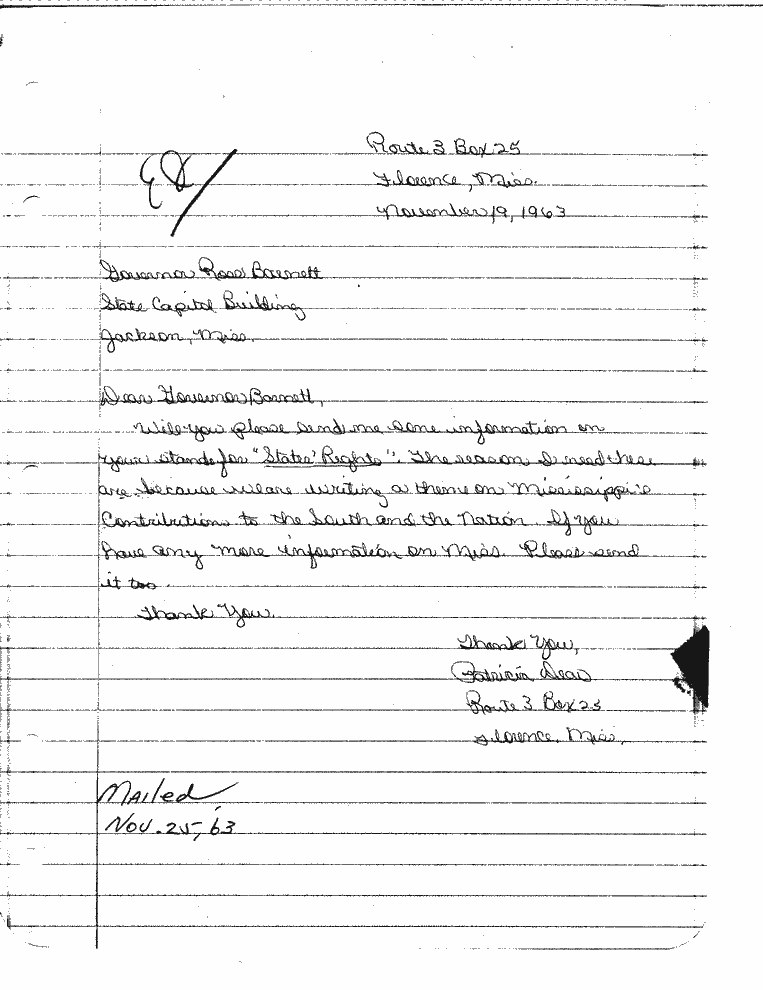 Route 3 Box 25
Florence, Miss.
November 19, 1963
Governor Ross Barnett
State Capitol Building
Jackson, Miss.
Dear Governor Barnett,
Will you please send me some information on
your stands for "States' Rights". The reason I need these
are because we are writing a theme on Mississippi's
Contributions to the South and the Nation. If you
have any more information on Miss. Please send
it too.
Thank You.
Thank You,
Patricia Dear
Route 3 Box 25
Florence, Miss.
Mailed
Nov. 25, 63